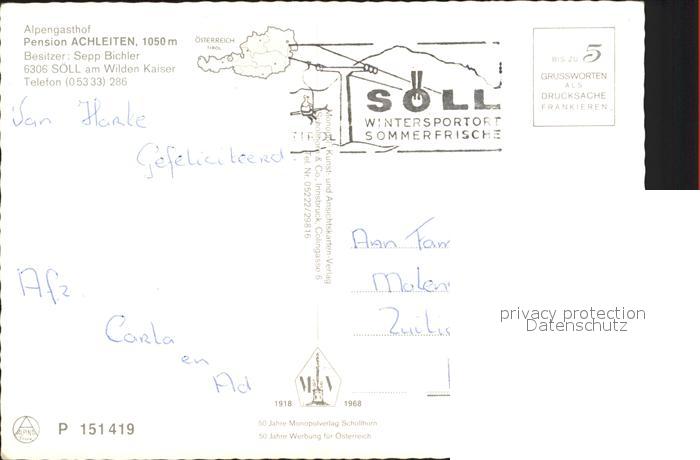 Alpengasthof
Pension ACHLEITEN, 1050 m
Besitzer: Sepp Bichler
6306 SÖLL am Wilden Kaiser
Telefon (0 53 33) 286
ÖSTERREICH
TIROL
TIROL
SÖLL
WINTERSPORTORT
SOMMERFRISCHE
BIS ZU 5
GRUSSWORTEN
ALS
DRUCKSACHE
FRANKIEREN
Van Harte
Gefeliciteerd.
Afz.
Carla
en
Ad
Monopol Kunst- und Ansichtskarten-Verlag
& Co., Innsbruck, Colingasse 6
Tel. Nr. 05222/29816
Aan Fam
privacy protection
Datenschutz
M V
1918 1968
50 Jahre Monopolverlag Schöllhorn
50 Jahre Werbung für Österreich
ALPINE
P 151419